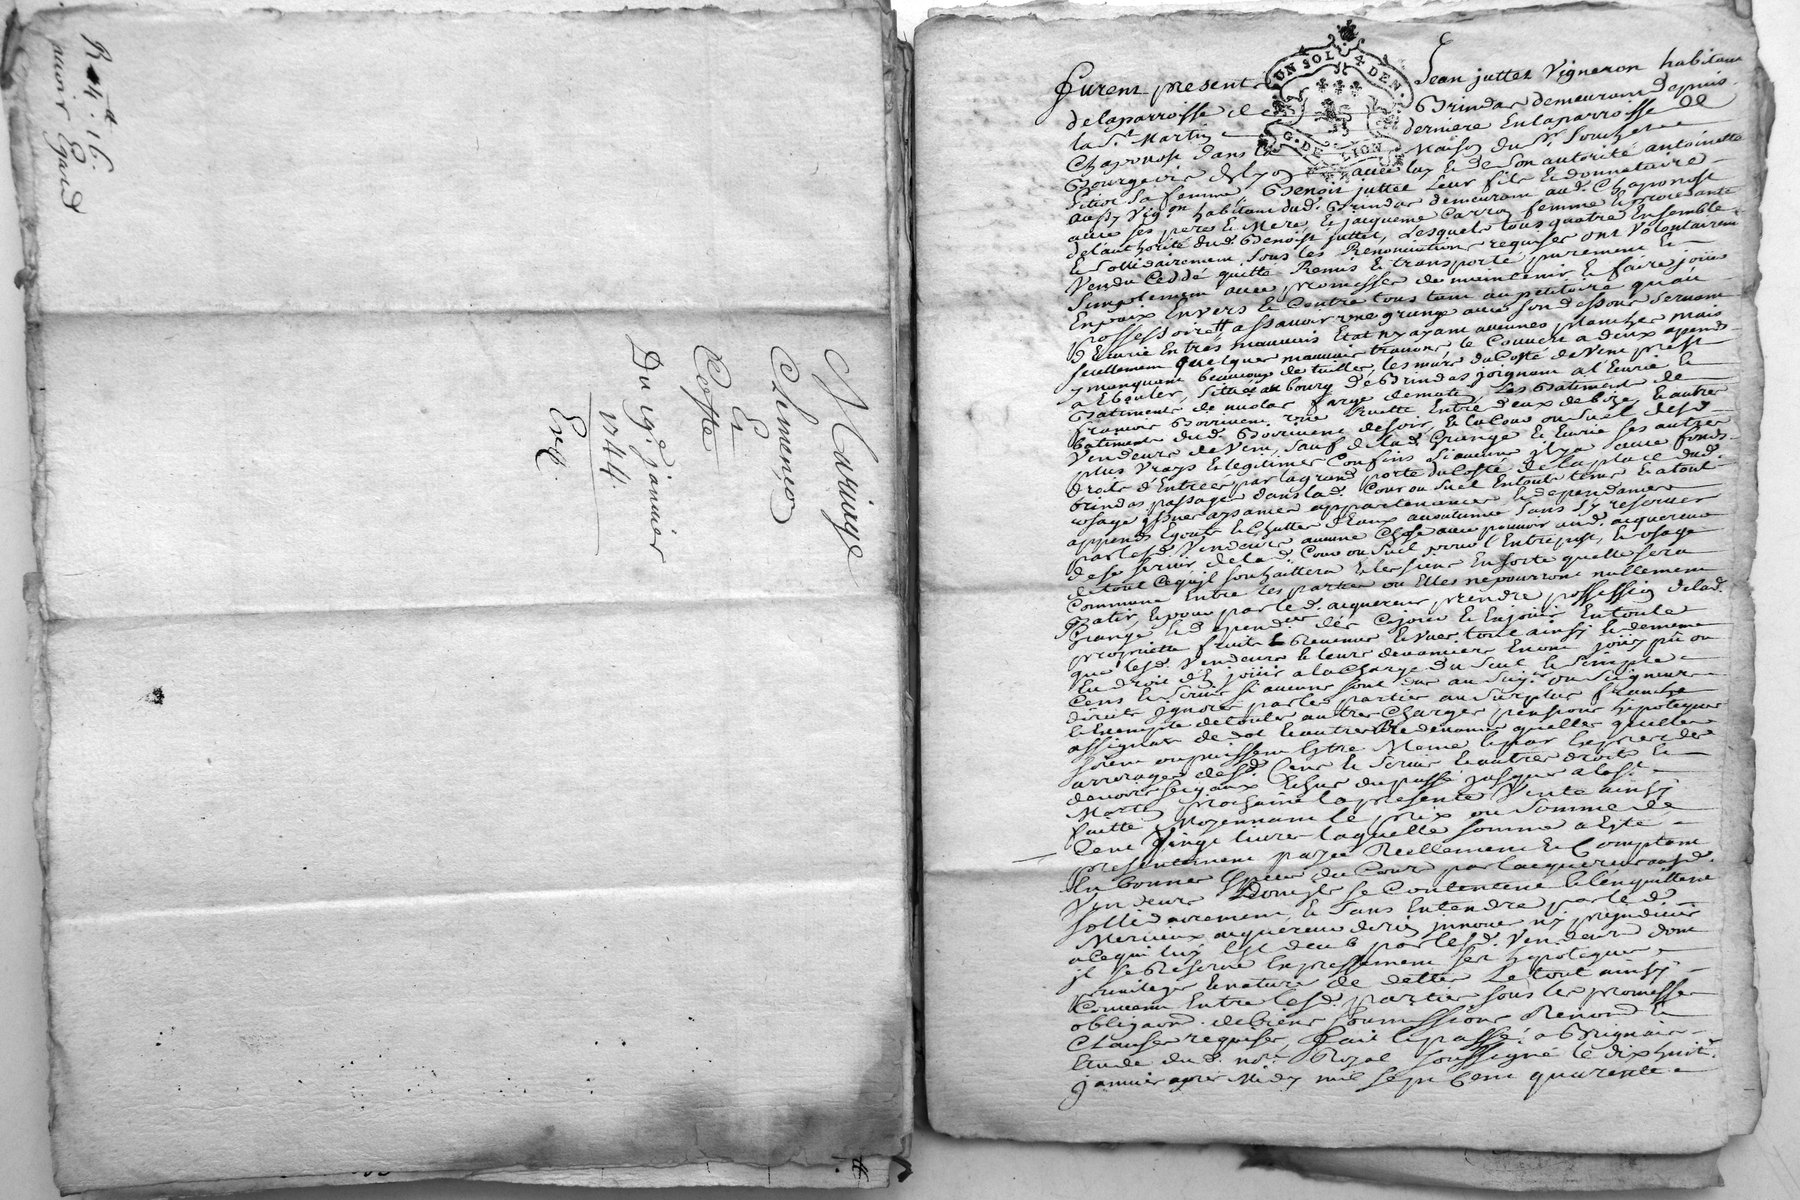 R 4ᵗᵗ. 16.
Mariage
Chimençon
Et
Coste
Du 19ᵉ. janvier
1744
Exp.
UN SOL. 4 DEN.
G. DE LION
Furent presents Jean juttet Vigneron habitant
de la parroisse de Brindas demeurant depuis
la St. Martin derniere En la parroisse de
Chaponost dans la Maison du Sr. Souchet
Bourgeois de lyon avec luy et de Son autorité antoinette
sa femme, Benoit juttet Leur fils et donnataire
aussy Vigon habitant dud. Brindas demeurant aud. Chaponost
avec ses pere et Mere, et jacqueme Carron femme et procedante
de l'authorité dud. Benoist juttet, Lesquels tous quatre Ensemble
et Sollidairement Sous les Renonciations requises ont Volontairement
Vendu Ceddé quitté Remis et transporté purement et
Simplement avec promesses de maintenir et faire jouir
En paix Envers et Contre tous tant au petitoire qu'au
possessoire assavoir une grange avec son dessous servant
d'Ecurie En tres mauvais Etat n'y ayant aucunes planches mais
seullement quelques mauvais travons le Couvert a deux apends
y manquant beaucoup de tuilles, les murs du Costé de Vent prest
a Ebouler, Scittuée au bourg de Brindas joignant a l'Ecurie et
Batiments de nicolas farge de matin, Les Batiment de
françois une Ruette Entre d'eux de bize, et autres
batiments dud. de soir, et la Cour ou Suel desd.
Vendeurs de Vent, Sauf de lad. Grange et Ecurie ses autres
plus Vrays et legitimes Confins Si aucuns il y a avec fonds
droits d'Entrées par la grand porte du Costé de la place dud.
brindas passage dans lad. Cour ou Suel En tout tems et a tout
usage appartenances et dependances
apends Egouts et Chuttes d'Eaux accoutumé Sans S'y reserver
par lesd. Vendeurs aucune Chose avec pouvoir aud. acquereur
de se servir de lad. Cour ou Suel pour l'Entrepost, et usage
de tout Ce qu'il souhaittera et les siens En sorte quelle sera
Commune Entre les parties ou Elles ne pourront nullement
Batir, et pour par led. acquereur prendre possession de lad.
Grange et dependces dés Ce jour et En jouir En toute
proprietté fruits et Revenus et Vser tout ainsy et de meme
que lesd. Vendeurs et leurs devanciers En ont jouis pû ou
Eu droit d'En jouir a la Charge du Seul et Simple
Cens et Servis si aucuns sont dus au Seigr. ou Seigneurs
directs jgnorés par les parties au surplus franche
et Exempte de toutes autres Charges pensions hipoteques
assignats de dot et autres Redevances quelles quelles
soient ou puissent Estre Meme et par Exprés des
arrerages desd. Cens et Servis et autres droits et
devoirs seigaux Echus du passé jusques a la St.
Martin prochaine la presente Vente ainsy
faitte Moyennant le prix ou Somme de
Cent Vingt livres laquelle somme a Esté
presentement payée Reellement et Comptant
En bonnes Especes du Cours par l'acquereur auxd.
Vendeurs Dont ils se Contentent et l'en quittent
sollidairement, et sans Entendre par led.
Merieux acquereur de rien jnnover ny prejudicier
a Ce qui luy Est deub par lesd. Vendeurs dont
jl se Reserve Expressement ses hypoteques
privileges et nature de dettes Le tout ainsy
Convenu Entre lesd. parties sous les promesses
obligaons. de biens soumissions Renonons. et
Clauses requises, Fait et passé a Brignais
Etude du d. notre Royal soussigné le dix huit
janvier apres Midy mil sept Cent quarente